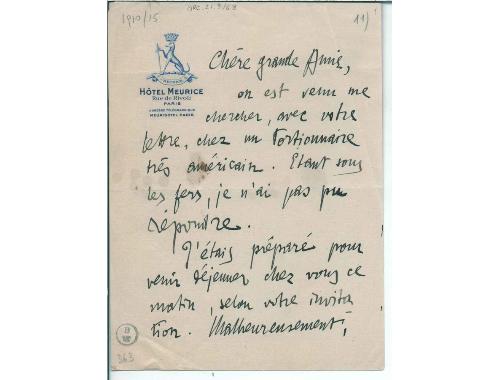 1910/15
ARC. 21.9/68
11)
MEURICE
HÔTEL MEURICE
Rue de Rivoli
PARIS
ADRESSE TÉLÉGRAPHIQUE
MEURISOTEL PARIS
Chère grande Amie,
on est venu me
chercher, avec votre
lettre, chez un Tortionnaire
très américain. Etant sous
les fers, je n'ai pas pu
répondre.
J'étais préparé pour
venir déjeuner chez vous ce
matin, selon votre invita
tion. Malheureusement,
363